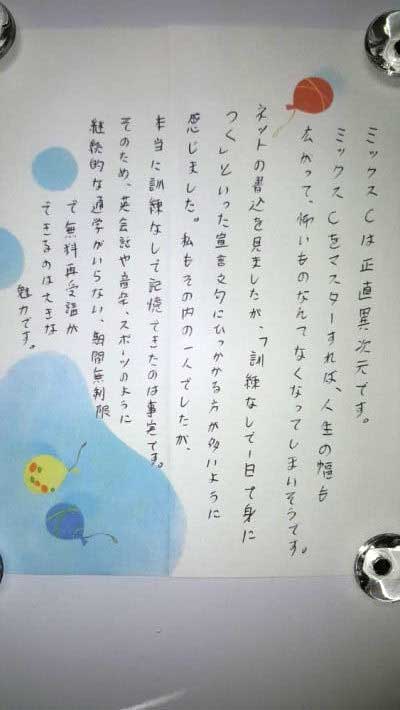 ミックスCは正直異次元です。
ミックスCをマスターすれば、人生の幅も
広がって、怖いものなんてなくなってしまいそうです。
ネットの書込を見ましたが、「訓練なしで1日で身に
つく」といった宣言文句にひっかかる方が多いように
感じました。私もその内の一人でしたが、
本当に訓練なしで記憶できたのは事実です。
そのため、英会話や音楽、スポーツのように
継続的な通学がいらない、期間無制限
で無料再受講が
できるのは大きな
魅力です。